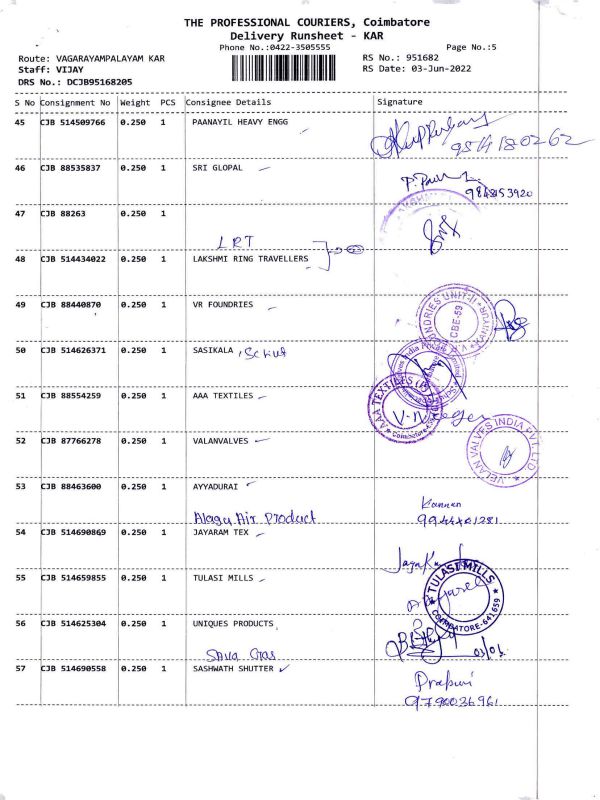 THE PROFESSIONAL COURIERS, Coimbatore
Delivery Runsheet - KAR
Phone No.:0422-3505555
Page No.:5
Route: VAGARAYAMPALAYAM KAR
RS No.: 951682
Staff: VIJAY
RS Date: 03-Jun-2022
DRS No.: DCJB95168205
S No Consignment No Weight PCS Consignee Details Signature
45 CJB 514509766 0.250 1 PAANAYIL HEAVY ENGG
9541180262
46 CJB 88535837 0.250 1 SRI GLOPAL
9848153920
47 CJB 88263 0.250 1
LRT
48 CJB 514434022 0.250 1 LAKSHMI RING TRAVELLERS
49 CJB 88440870 0.250 1 VR FOUNDRIES
CBE-59
50 CJB 514626371 0.250 1 SASIKALA
51 CJB 88554259 0.250 1 AAA TEXTILES
AAA TEXTILES
52 CJB 87766278 0.250 1 VALANVALVES
VELAN VALVES INDIA PVT. LTD
53 CJB 88463600 0.250 1 AYYADURAI
Alagu Air Product
Kannan
9944401281
54 CJB 514690869 0.250 1 JAYARAM TEX
55 CJB 514659855 0.250 1 TULASI MILLS
TULASI MILLS
COIMBATORE-641659
56 CJB 514625304 0.250 1 UNIQUES PRODUCTS
Siva Gas
57 CJB 514690558 0.250 1 SASHWATH SHUTTER
9790036961